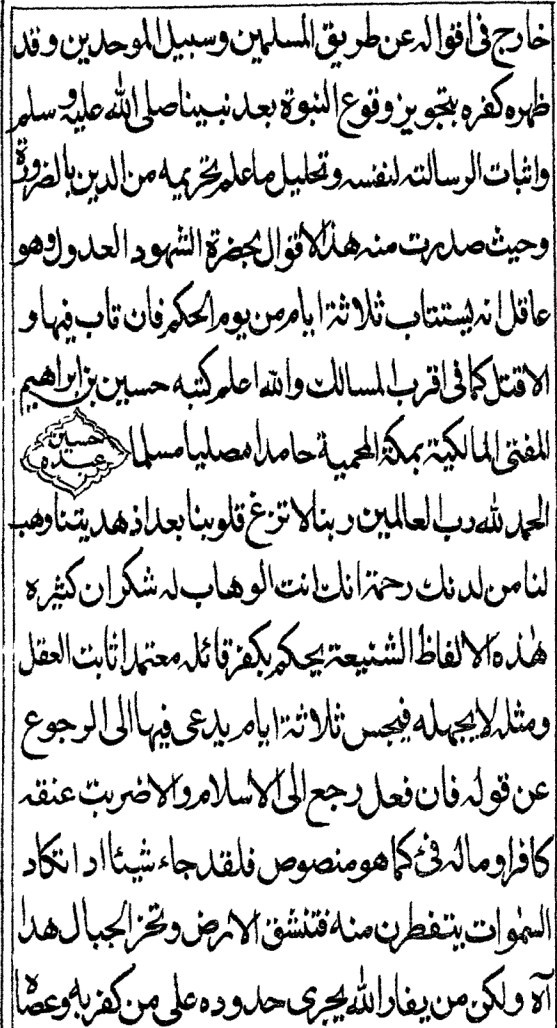 خارج فى اقواله عن طريق المسلمين وسبيل الموحدين وقد
ظهره كفره بتجويز وقوع النبوة بعد نبينا صلى الله عليه وسلم
واثبات الرسالته لنفسه وتحليل ما علم تحريمه من الدين بالضرورة
وحيث صدرت منه هذا الاقوال بحضرة الشهود العدول وهو
عاقل انه يستتاب ثلاثة ايام من يوم الحكم فان تاب فيها و
الا قتل كما فى اقرب المسالك والله اعلم كتبه حسين بن ابراهيم
المفتى المالكية بمكة المحمية حامدا مصليا مسلما حسين عبده
الحمد لله رب العالمين ربنا لا تزغ قلوبنا بعد اذ هديتنا وهب
لنا من لدنك رحمة انك انت الوهاب له شكران كثيره
هٰذه الالفاظ الشنيعة يحكم بكفر قائله معتمدا ثابت العقل
ومثله لا يجهله فيحبس ثلاثة ايام يدعى فيها الى الرجوع
عن قوله فان فعل رجع الى الاسلام والا ضربت عنقه
كافرا وماله فئ كما هو منصوص فلقد جاء شيئا ادا تكاد
السمٰوات يتفطرن منه فتنشق الارض وتخز الجبال هدا
آه ولكن من يغار الله يجرى حدوده على من كفر به وعصاه